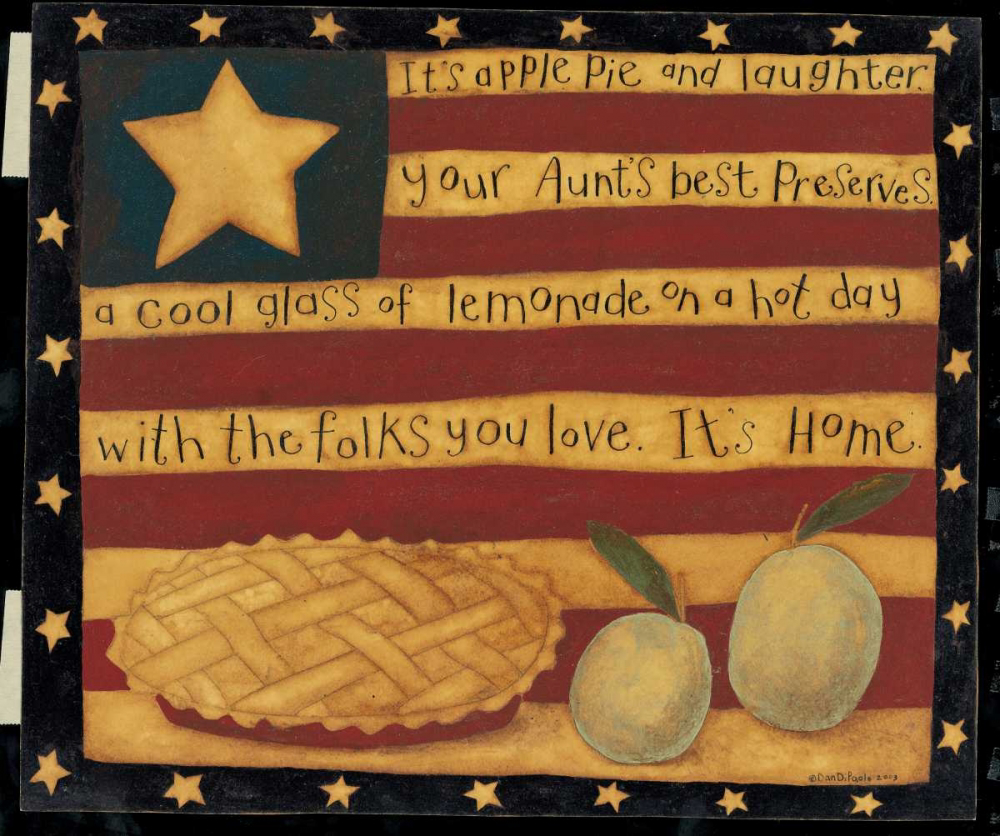 It's apple pie and laughter.
your Aunt's best Preserves.
a cool glass of lemonade on a hot day
with the folks you love. It's Home.
©Dan DiPaolo 2003